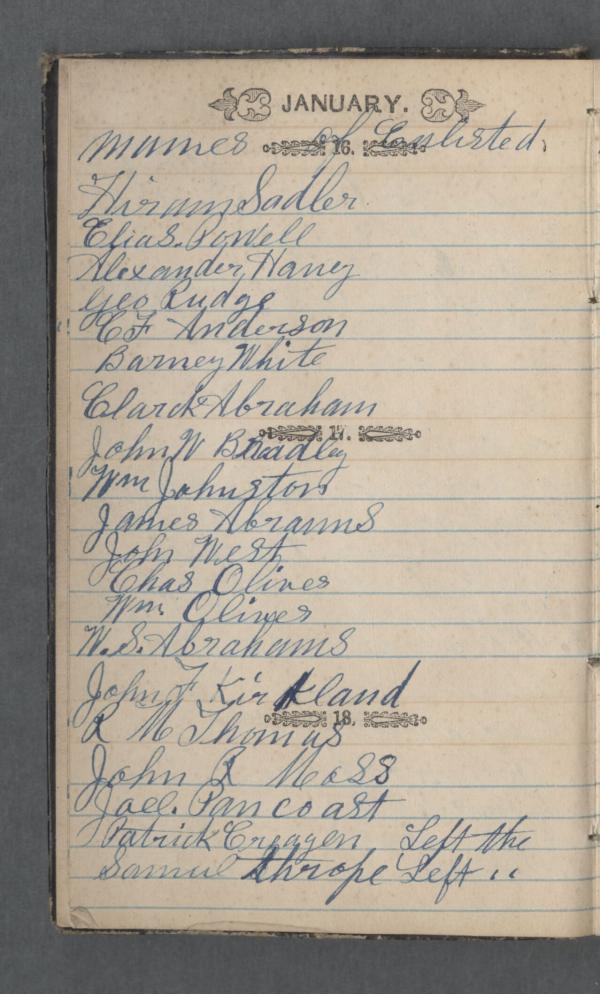 JANUARY.
names of Enlisted.
16.
Hiram Sadler
Elias. Powell
Alexander Haney
Geo Rudge
CF Anderson
Barney White
Clarck Abraham
17.
John W Bradley
Wm Johnston
James Abrams
John West
Chas Olives
Wm. Olives
W.S. Abrahams
John F Kirkland
18.
R M Thomas
John R Moss
Joel. Pancoast
Patrick Creagen Left the
Samul thrope Left "